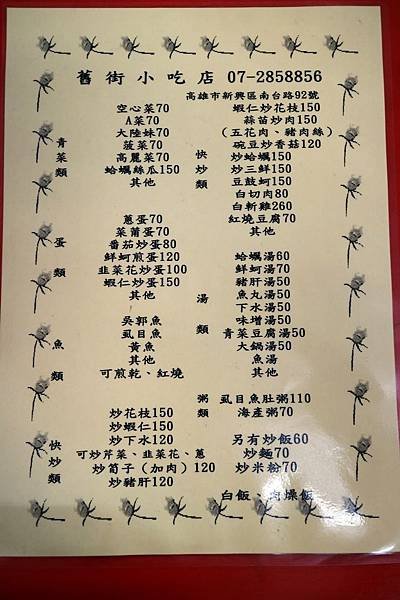 舊街小吃店 07-2858856
高雄市新興區南台路92號
青菜類
空心菜70
A菜70
大陸妹70
菠菜70
高麗菜70
蛤蠣絲瓜150
其他
蛋類
蔥蛋70
菜莆蛋70
番茄炒蛋80
鮮蚵煎蛋120
韭菜花炒蛋100
蝦仁炒蛋150
其他
魚類
吳郭魚
虱目魚
黃魚
其他
可煎乾、紅燒
快炒類
炒花枝150
炒蝦仁150
炒下水120
可炒芹菜、韭菜花、蔥
炒筍子(加肉)120
炒豬肝120
快炒類
蝦仁炒花枝150
蒜苗炒肉150
(五花肉、豬肉絲)
碗豆炒香菇120
炒蛤蠣150
炒三鮮150
豆鼓蚵150
白切肉80
白斬雞260
紅燒豆腐70
其他
湯類
蛤蠣湯60
鮮蚵湯70
豬肝湯50
魚丸湯50
下水湯50
味增湯50
青菜豆腐湯50
大鍋湯50
魚湯
其他
粥類
虱目魚肚粥110
海產粥70
另有炒飯60
炒麵70
炒米粉70
白飯、肉燥飯